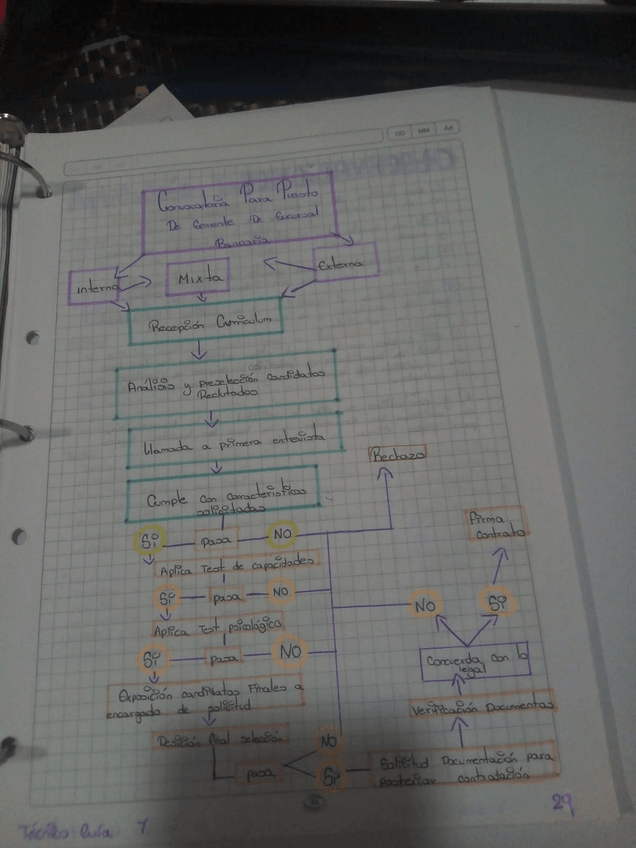 DD MM AA
Convocatoria Para Puesto
De Gerente De Sucursal
Bancaria
Interna
Mixta
Externa
Recepción Curriculum
Análisis y preselección candidatos
Reclutados
Llamada a primera entrevista
Cumple con características
solicitadas
Rechazo
Si pasa NO
Firma
Contrato
Aplica Test de capacidades
Si pasa NO
NO Si
Aplica Test psicológico
Si pasa NO
Concuerda con lo
legal
Exposición candidatos Finales a
encargado de solicitud
Verificación Documentos
Desición final selección
NO
pasa
Si
Solicitud Documentación para
posterior contratación
29
Guía 7